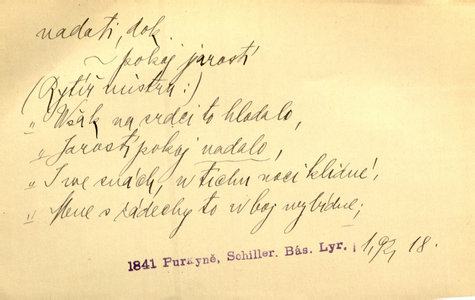 nadati, dok.
~ pokoj jarostí
(Rytíř mistru:)
„Však na srdci to hlodalo,
„Jarosti pokoj nadalo,
„I ve snách, v tichu noci klidné,
„Mene s vzdechy to v boj vybídne;
1841 Purkyně, Schiller. Bás. Lyr. 1, 92, 18.